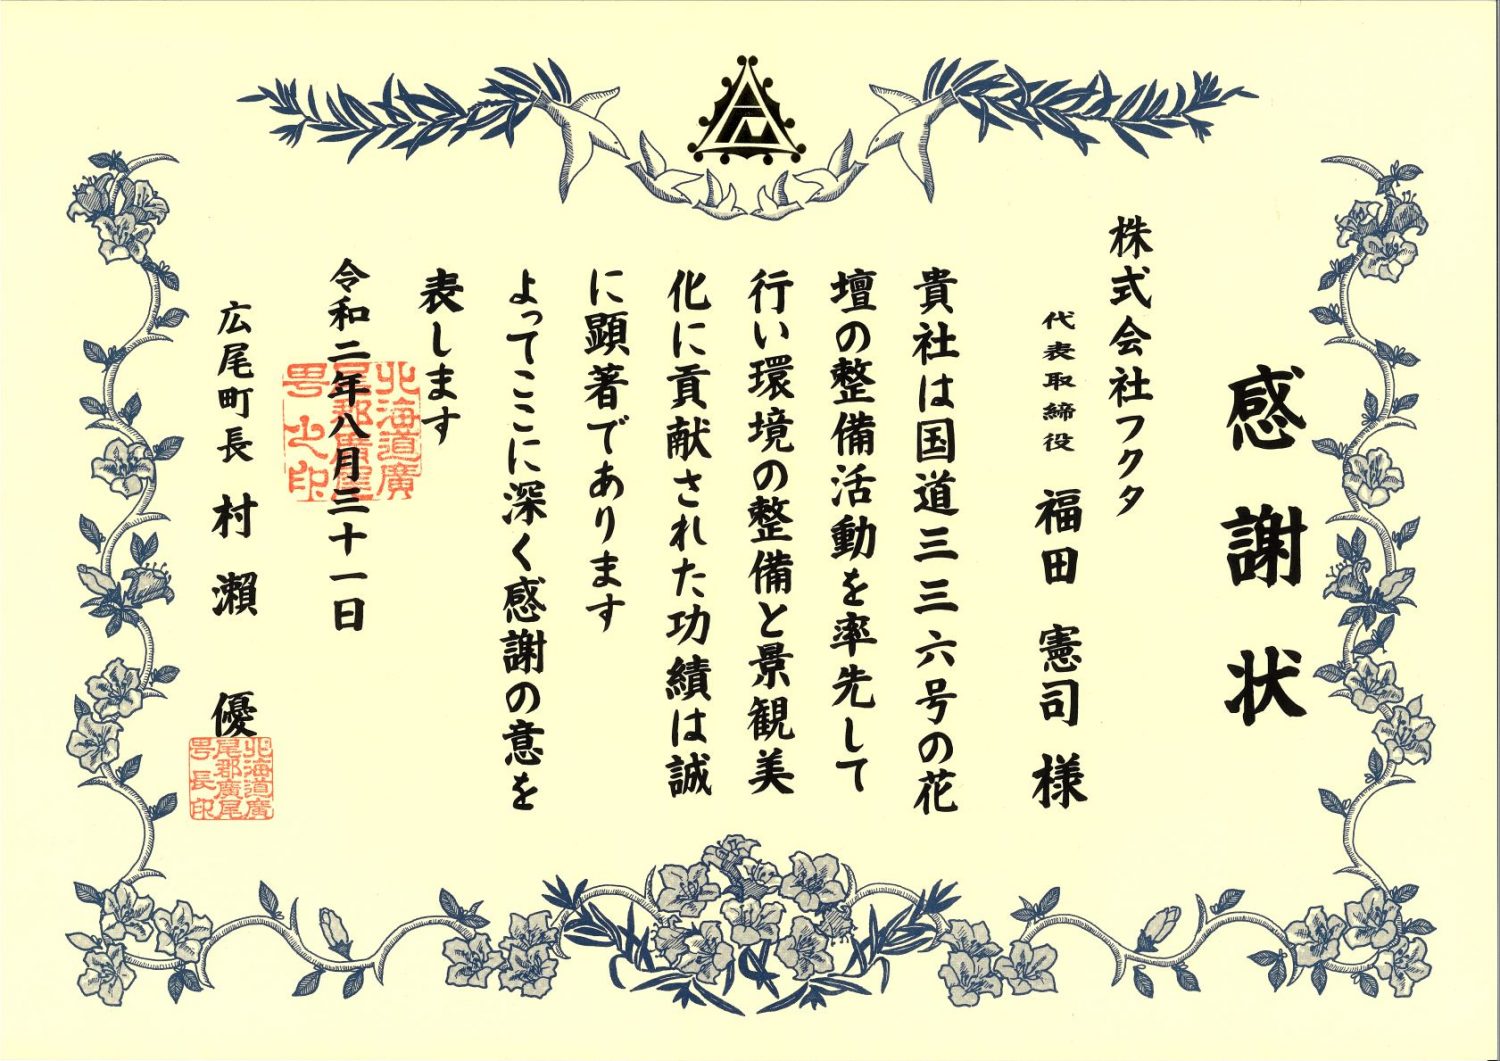 感謝状
株式会社フクタ
代表取締役 福田 憲司 様
貴社は国道三三六号の花
壇の整備活動を率先して
行い環境の整備と景観美
化に貢献された功績は誠
に顕著であります
よってここに深く感謝の意を
表します
令和二年八月三十一日
北海道廣
尾郡廣尾
町之印
広尾町長 村瀬 優
北海道廣
尾郡廣尾
町長印